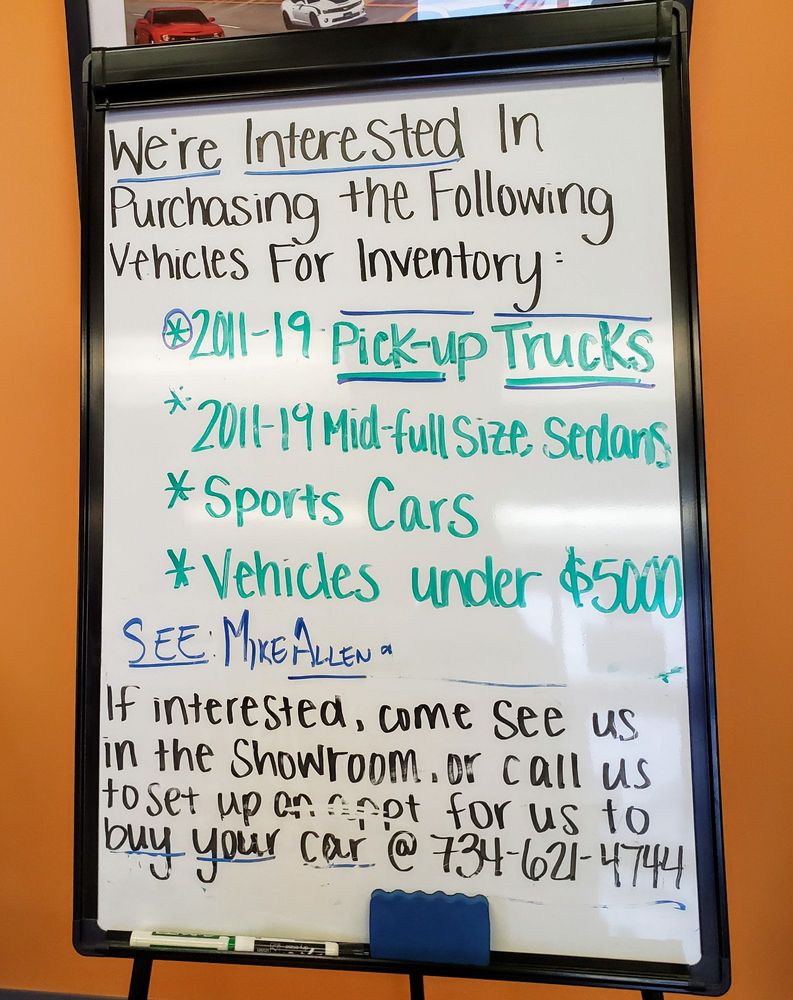 We're Interested In
Purchasing the Following
Vehicles For Inventory:
* 2011-19 Pick-up Trucks
* 2011-19 Mid-full Size Sedans
* Sports Cars
* Vehicles under $5000
SEE: MIKE ALLEN
If interested, come see us
in the Showroom, or call us
to set up an appt for us to
buy your car @ 734-621-4744